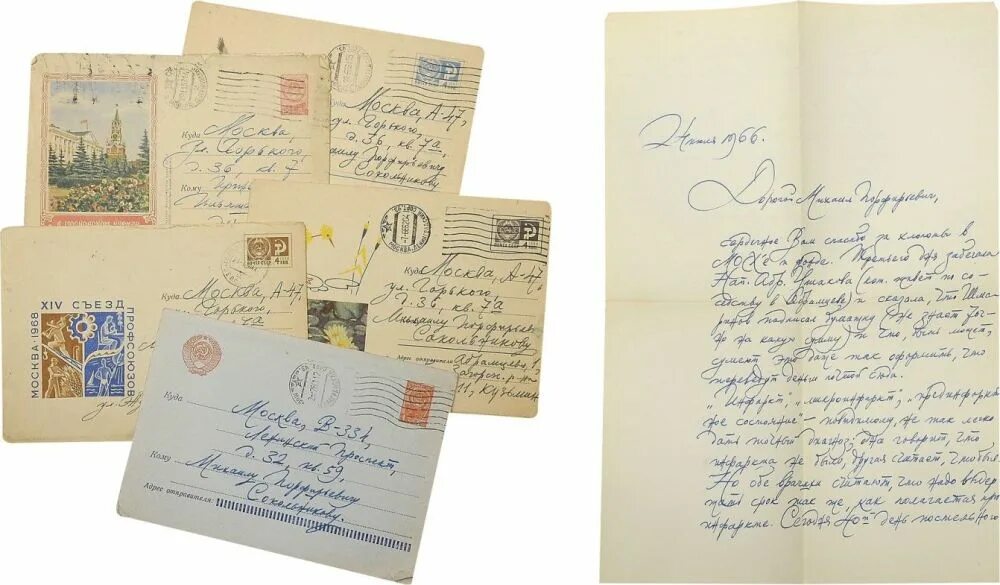 4 КОП
Москва, А-47,
ул. Горького,
д. 36, кв. 7а
Михаилу Порфирьевичу
Сокольникову
Куда Москва,
ул. Горького,
д. 36, кв. 7
Кому
4 КОП
XIV СЪЕЗД
ПРОФСОЮЗОВ
МОСКВА·1968
Москва, А-47
Горького,
кв. 7а
4 КОП
МОСКВА
Куда Москва, А-47
ул. Горького,
д. 36, кв. 7а
Михаилу Порфирьевичу
Сокольникову
Адрес отправителя: Абрамцево,
Загорск. р-н
11,
Куда Москва, В-334,
Ленинский проспект,
д. 32, кв. 59,
Кому Михаилу Порфирьевичу
Сокольникову.
Адрес отправителя:
1966.
Дорогой Михаил Порфирьевич,
сердечное Вам спасибо за хлопоты в
МОСХ'е и фонде. Третьего дня забегала
Нат. Абр. Ушакова (кот. живет по со-
седству в Абрамцеве) и сказала, что Шма-
ринов подписал бумажку (не знает точ-
но на какую сумму) и что, быть может,
сумеют это даже так оформить, что
переведут деньги почтой сюда.
"Инфаркт", "микроинфаркт", "прединфаркт-
ное состояние" - повидимому, не так легко
дать точный диагноз: одна говорит, что
инфаркта не было, другая считает, что был.
Но обе врачихи считают, что надо выдер-
жать срок так же, как полагается при
инфаркте. Сегодня день постельного